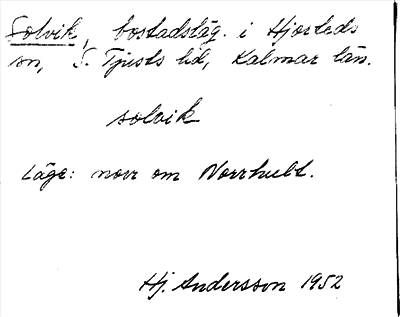 Solvik, bostadsläg. i Hjorteds
sn, S. Tjusts hd, Kalmar län.
solvik
Läge: norr om Norrhult.
Hj. Andersson 1952